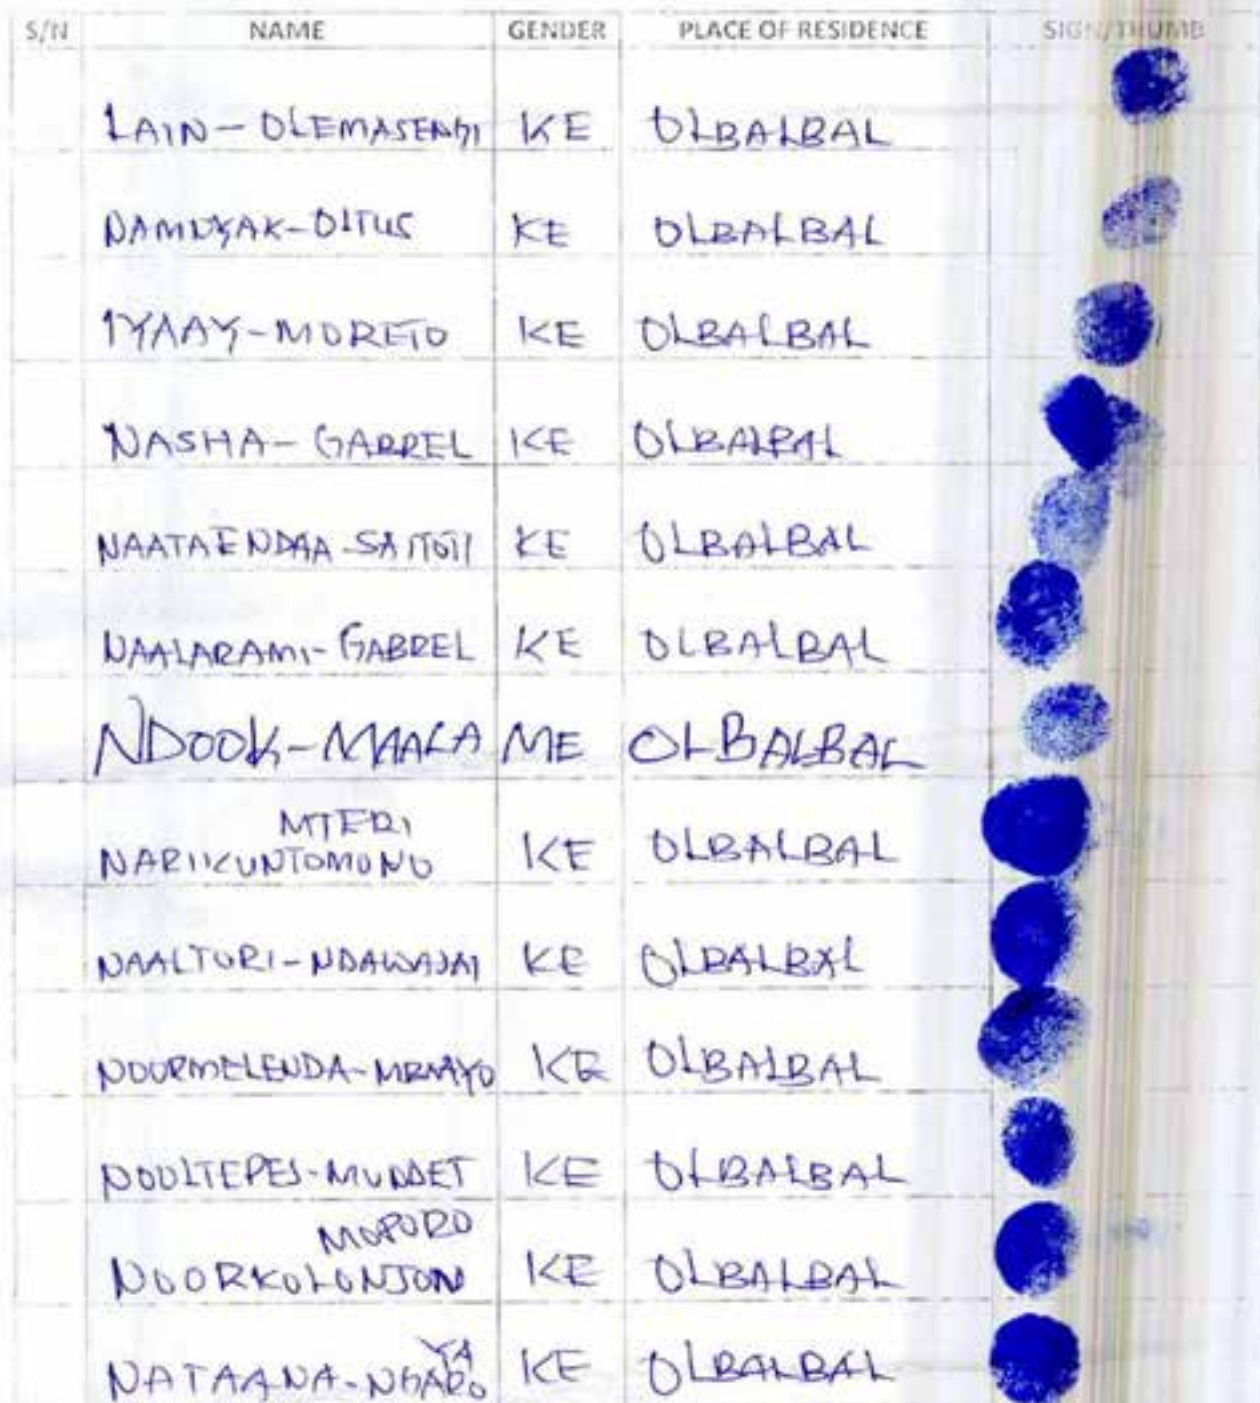 S/N NAME GENDER PLACE OF RESIDENCE SIGN/THUMB
LAIN-OLEMASENGI KE OLBALBAL
NAMNYAK-OITUS KE OLBALBAL
IYAAY-MORETO KE OLBALBAL
NASHA-GABREL KE OLBALBAL
NAATAENDAA-SAITOTI KE OLBALBAL
NAALARAMI-GABREL KE OLBALBAL
NDOOK-MAALA ME OLBALBAL
MTERI
NARIKUNTOMONO KE OLBALBAL
NAALTURI-NDAWAJAI KE OLBALBAL
NOORMELENDA- KE OLBALBAL
NOOLTEPES- KE OLBALBAL
MOPORO
NOORKOLONJON KE OLBALBAL
YA
NATAANA-NGARO KE OLBALBAL